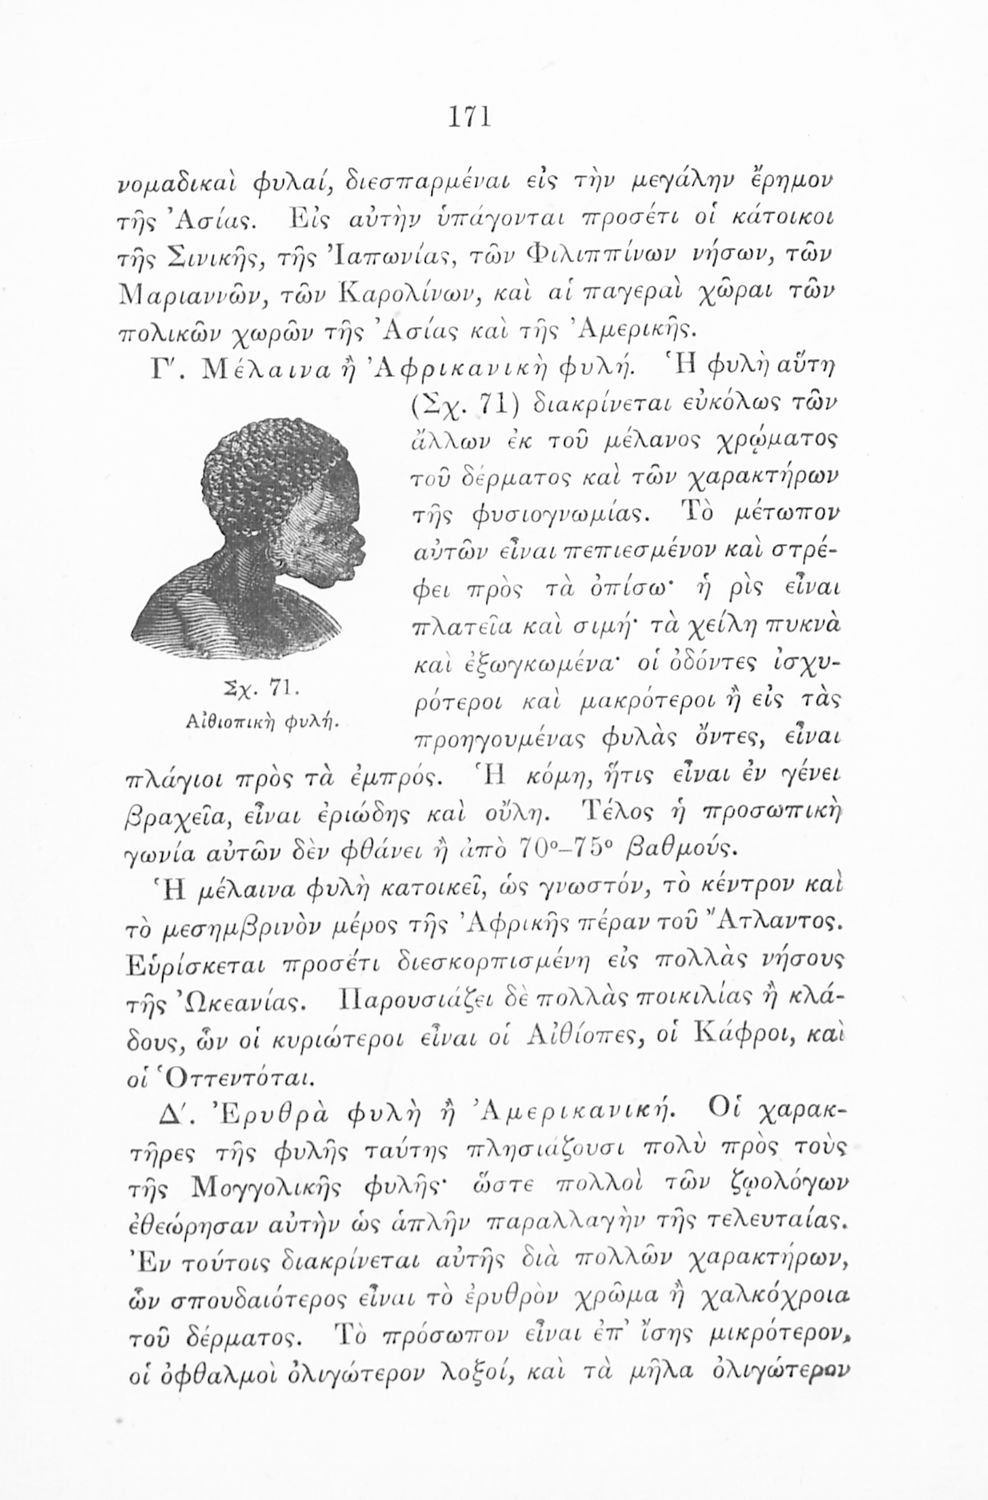 171
νομαδικαὶ φυλαί, διεσπαρμέναι εἰς τὴν μεγάλην ἔρημον
τῆς Ἀσίας. Εἰς αὐτὴν ὑπάγονται προσέτι οἱ κάτοικοι
τῆς Σινικῆς, τῆς Ἰαπωνίας, τῶν Φιλιππίνων νήσων, τῶν
Μαριαννῶν, τῶν Καρολίνων, καὶ αἱ παγεραὶ χῶραι τῶν
πολικῶν χωρῶν τῆς Ἀσίας καὶ τῆς Ἀμερικῆς.
Γ'. Μέλαινα ἢ Ἀφρικανικὴ φυλή. Ἡ φυλὴ αὕτη
(Σχ. 71) διακρίνεται εὐκόλως τῶν
ἄλλων ἐκ τοῦ μέλανος χρώματος
τοῦ δέρματος καὶ τῶν χαρακτήρων
τῆς φυσιογνωμίας. Τὸ μέτωπον
αὐτῶν εἶναι πεπιεσμένον καὶ στρέ-
φει πρὸς τὰ ὀπίσω· ἡ ῥὶς εἶναι
πλατεῖα καὶ σιμή· τὰ χείλη πυκνὰ
καὶ ἐξωγκωμένα· οἱ ὀδόντες ἰσχυ-
ρότεροι καὶ μακρότεροι ἢ εἰς τὰς
προηγουμένας φυλὰς ὄντες, εἶναι
Σχ. 71.
Αἰθιοπικὴ φυλή.
πλάγιοι πρὸς τὰ ἐμπρός. Ἡ κόμη, ἥτις εἶναι ἐν γένει
βραχεῖα, εἶναι ἐριώδης καὶ οὔλη. Τέλος ἡ προσωπικὴ
γωνία αὐτῶν δὲν φθάνει ἢ ἀπὸ 70°–75° βαθμούς.
Ἡ μέλαινα φυλὴ κατοικεῖ, ὡς γνωστόν, τὸ κέντρον καὶ
τὸ μεσημβρινὸν μέρος τῆς Ἀφρικῆς πέραν τοῦ Ἄτλαντος.
Εὑρίσκεται προσέτι διεσκορπισμένη εἰς πολλὰς νήσους
τῆς Ὠκεανίας. Παρουσιάζει δὲ πολλὰς ποικιλίας ἢ κλά-
δους, ὧν οἱ κυριώτεροι εἶναι οἱ Αἰθίοπες, οἱ Κάφροι, καὶ
οἱ Ὁττεντόται.
Δ'. Ἐρυθρὰ φυλὴ ἢ Ἀμερικανική. Οἱ χαρακ-
τῆρες τῆς φυλῆς ταύτης πλησιάζουσι πολὺ πρὸς τοὺς
τῆς Μογγολικῆς φυλῆς· ὥστε πολλοὶ τῶν ζῳολόγων
ἐθεώρησαν αὐτὴν ὡς ἁπλῆν παραλλαγὴν τῆς τελευταίας.
Ἐν τούτοις διακρίνεται αὐτῆς διὰ πολλῶν χαρακτήρων,
ὧν σπουδαιότερος εἶναι τὸ ἐρυθρὸν χρῶμα ἢ χαλκόχροια
τοῦ δέρματος. Τὸ πρόσωπον εἶναι ἐπ' ἴσης μικρότερον,
οἱ ὀφθαλμοὶ ὀλιγώτερον λοξοί, καὶ τὰ μῆλα ὀλιγώτερον